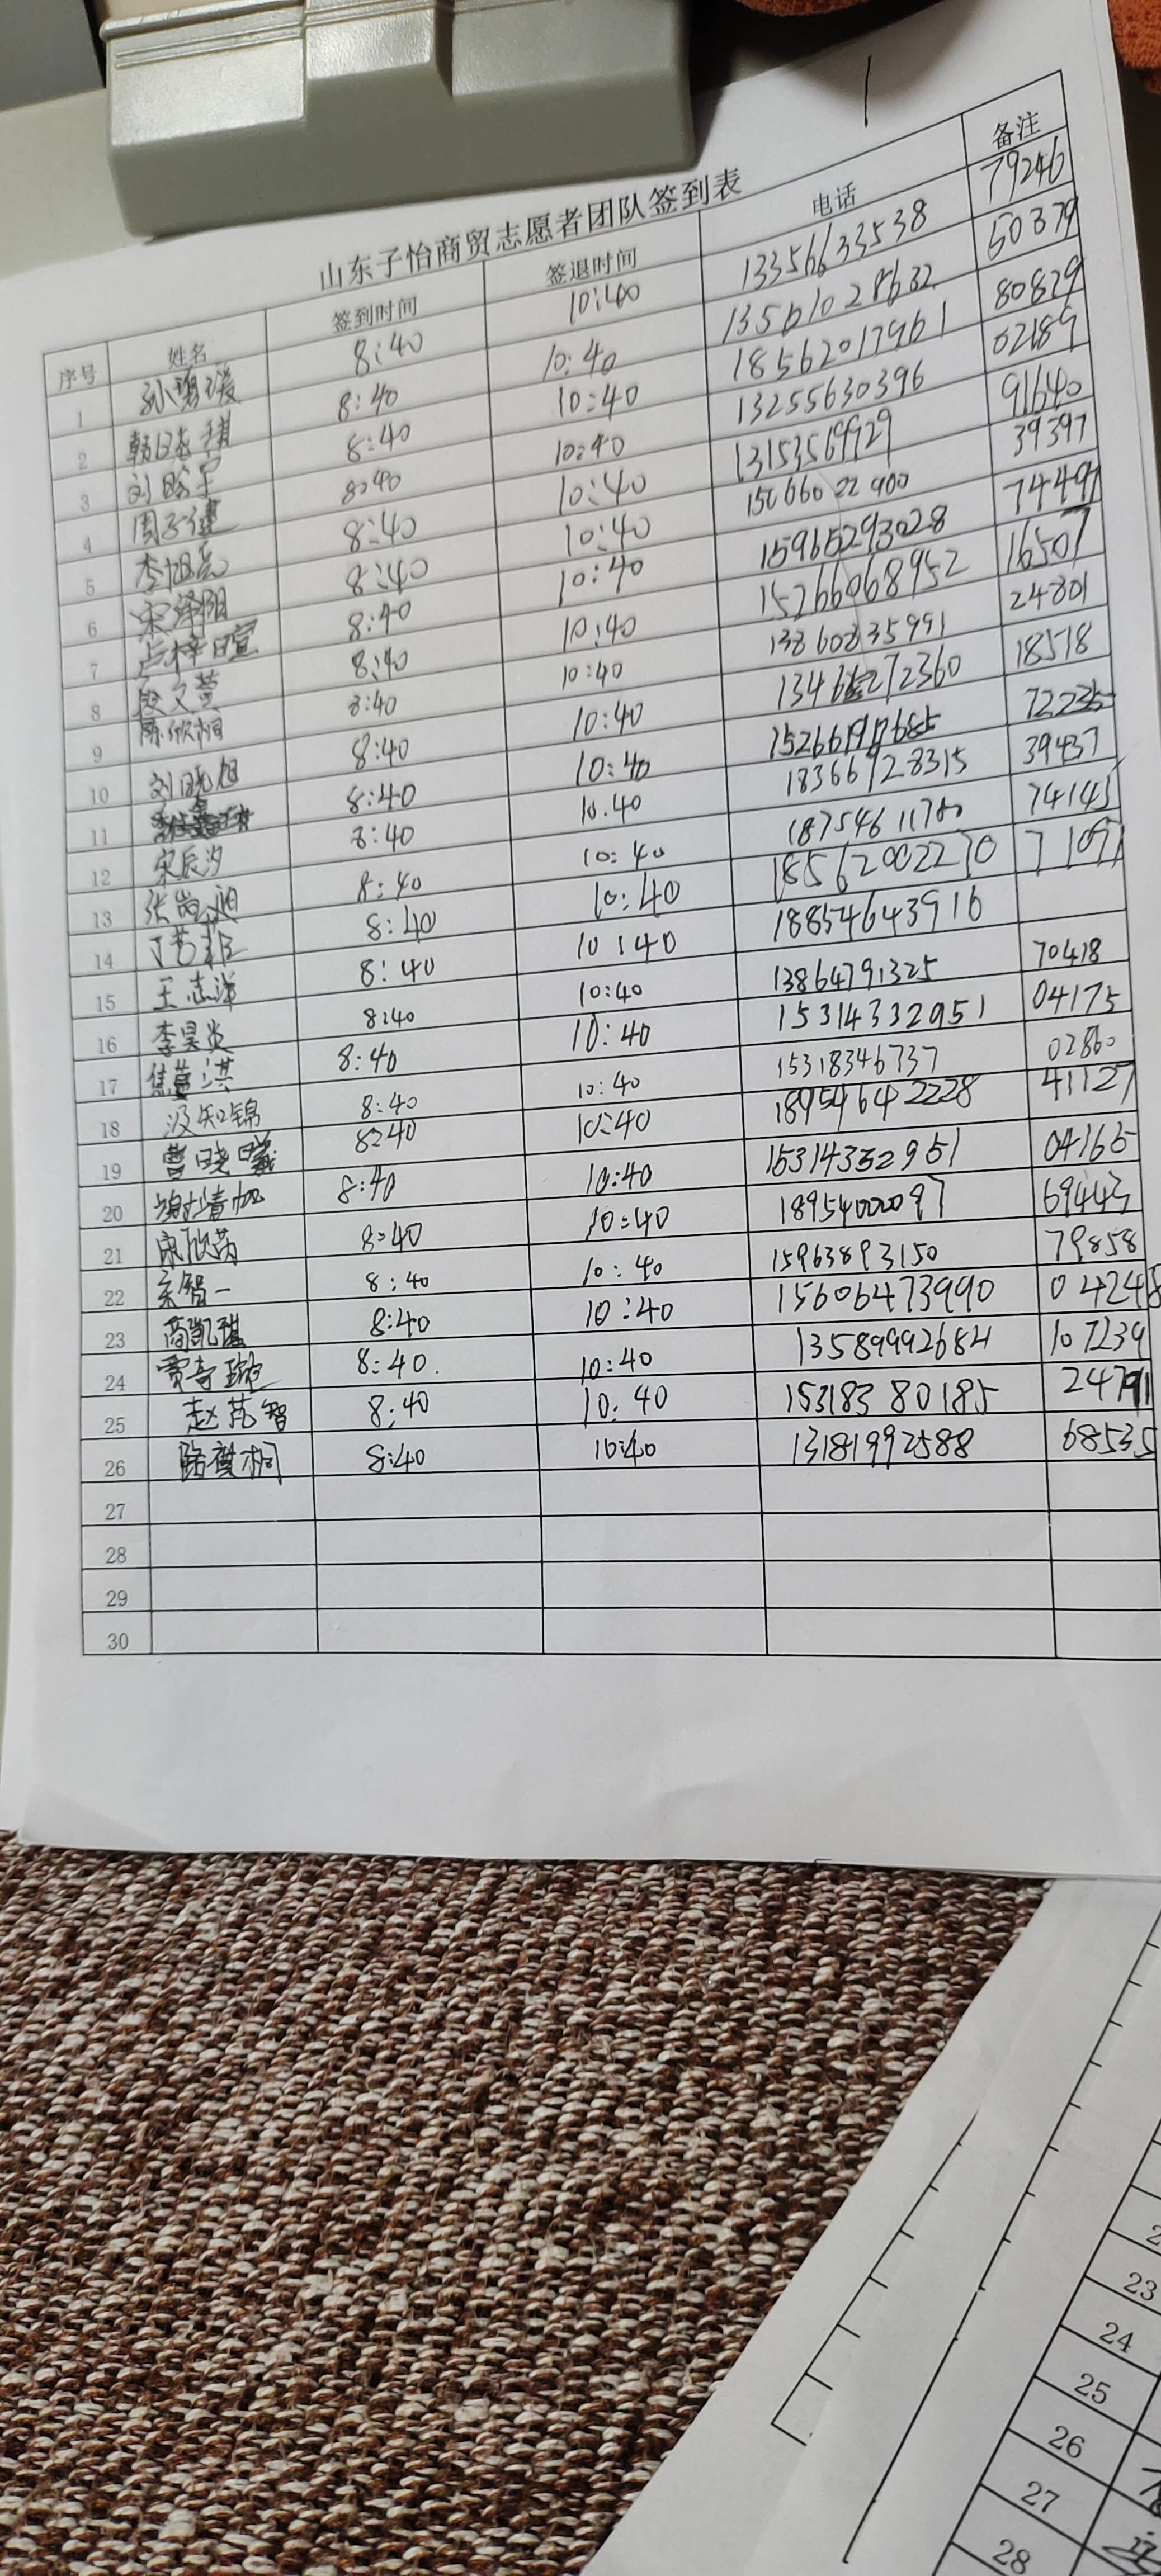 山东子怡商贸志愿者团队签到表
序号 姓名 签到时间 签退时间 电话 备注
1 8:40 10:40 13356633538 79246
2 8:40 10:40 13561028632 60379
3 刘 8:40 10:40 18562017961 80829
4 周子健 8:40 10:40 13255630396 02189
5 李旭亮 8:40 10:40 13153519929 91640
6 宋泽阳 8:40 10:40 15066022900 39397
7 卢梓暄 8:40 10:40 15965293028 74497
8 段文萱 8:40 10:40 15266068952 16507
9 陈欣桐 8:40 10:40 13860835991 24801
10 刘晓旭 8:40 10:40 272360 18518
11 8:40 10:40
12 宋辰汐 8:40 10:40 18366928315 39437
13 张 8:40 10:40 18754611780 74145
14 丁艺菲 8:40 10:40 18562002270 71097
15 王志洋 8:40 10:40 18854643916
16 李昊炎 8:40 10:40 13864791325 70418
17 焦 洪 8:40 10:40 15314332951 04175
18 汲知锦 8:40 10:40 15318346737 02860
19 曹晓曦 8:40 10:40 18954642228 41127
20 谢婧加 8:40 10:40 15314332951 04165
21 康欣芮 8:40 10:40 18954000097 69443
22 綦智一 8:40 10:40 15963893150 79858
23 商凯琪 8:40 10:40 15606473990 04248
24 贾奇璇 8:40. 10:40 13589992684 107239
25 赵艺智 8:40 10:40 15318380185 24791
26 路奕桐 8:40 10:40 13181992588 68535
27
28
29
30
23
24
25
26
27
28